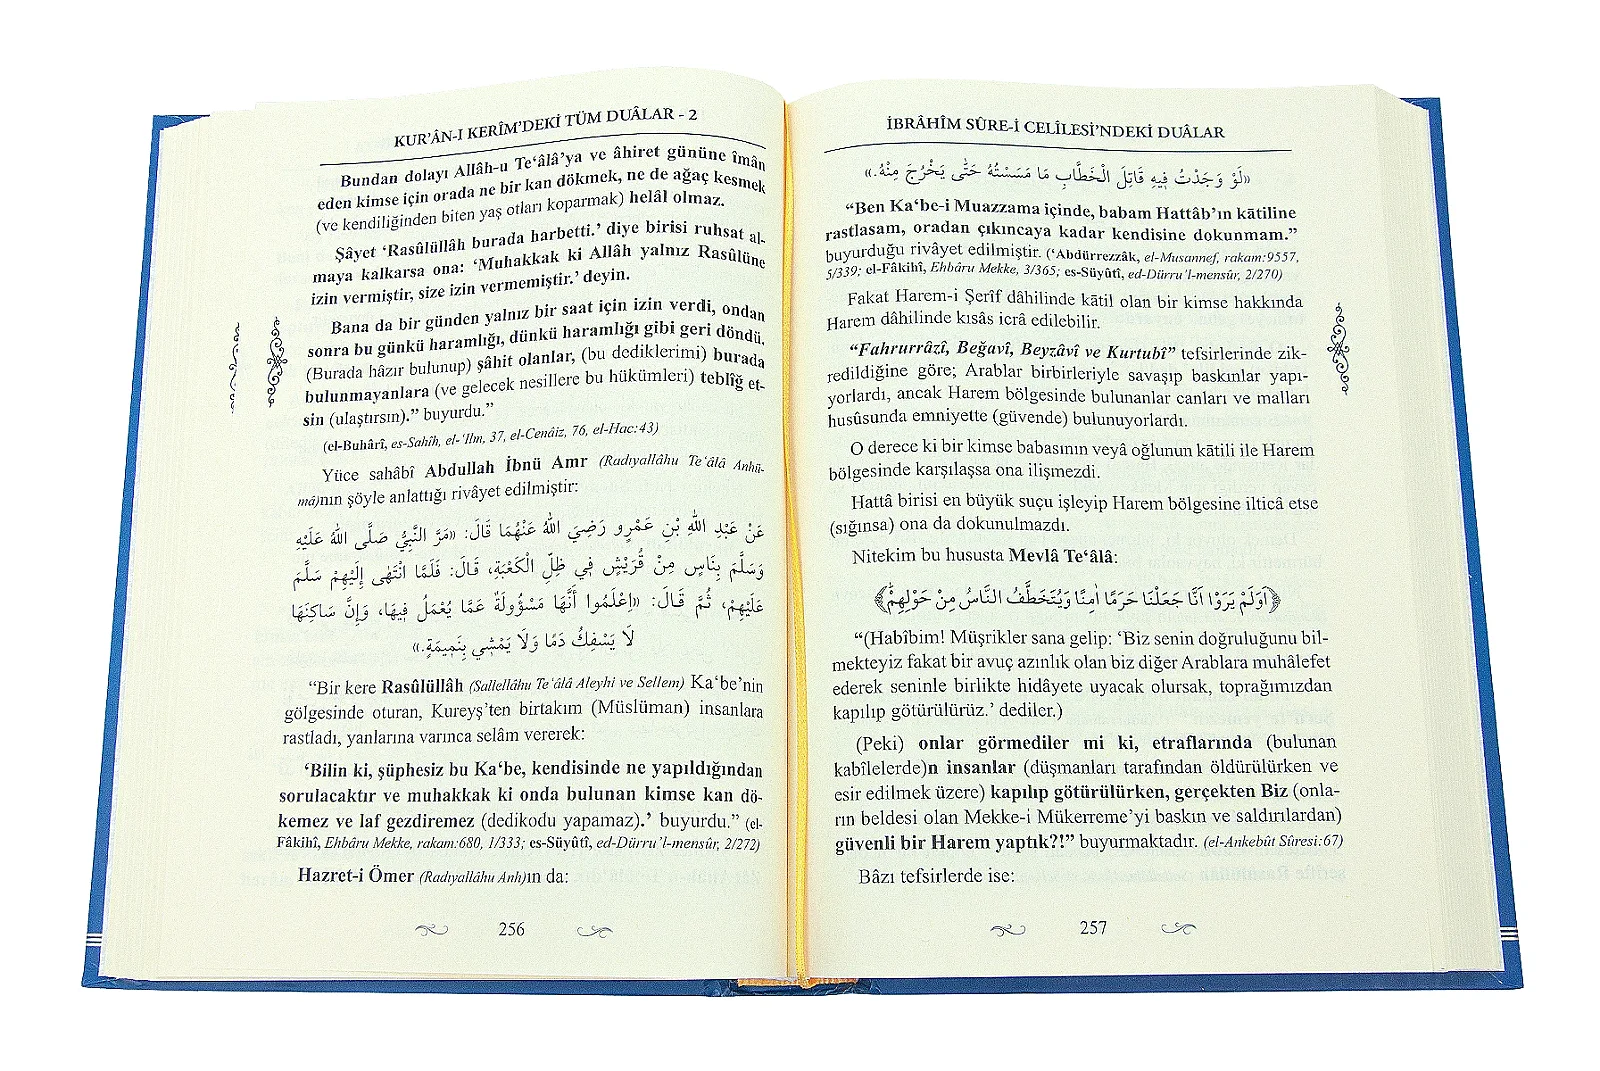 KUR’ÂN-I KERÎM’DEKİ TÜM DUÂLAR - 2
Bundan dolayı Allâh-u Te‘âlâ’ya ve âhiret gününe îmân
eden kimse için orada ne bir kan dökmek, ne de ağaç kesmek
(ve kendiliğinden biten yaş otları koparmak) helâl olmaz.
Şâyet ‘Rasûlüllâh burada harbetti.’ diye birisi ruhsat al-
maya kalkarsa ona: ‘Muhakkak ki Allâh yalnız Rasûlüne
izin vermiştir, size izin vermemiştir.’ deyin.
Bana da bir günden yalnız bir saat için izin verdi, ondan
sonra bu günkü haramlığı, dünkü haramlığı gibi geri döndü.
(Burada hâzır bulunup) şâhit olanlar, (bu dediklerimi) burada
bulunmayanlara (ve gelecek nesillere bu hükümleri) teblîğ et-
sin (ulaştırsın).” buyurdu.”
(el-Buhârî, es-Sahîh, el-‘Ilm, 37, el-Cenâiz, 76, el-Hac:43)
Yüce sahâbî Abdullah İbnü Amr (Radıyallâhu Te‘âlâ Anhü-
mâ)nın şöyle anlattığı rivâyet edilmiştir:
عَنْ عَبْدِ اللّٰهِ بْنِ عَمْرٍو رَضِيَ اللّٰهُ عَنْهُمَا قَالَ: «مَرَّ النَّبِيُّ صَلَّى اللّٰهُ عَلَيْهِ
وَسَلَّمَ بِنَاسٍ مِنْ قُرَيْشٍ فِي ظِلِّ الْكَعْبَةِ، قَالَ: فَلَمَّا انْتَهٰى إِلَيْهِمْ سَلَّمَ
عَلَيْهِمْ، ثُمَّ قَالَ: «اِعْلَمُوا أَنَّهَا مَسْؤُولَةٌ عَمَّا يُعْمَلُ فِيهَا، وَإِنَّ سَاكِنَهَا
لَا يَسْفِكُ دَمًا وَلَا يَمْشِي بِنَمِيمَةٍ.»
“Bir kere Rasûlüllâh (Sallellâhu Te‘âlâ Aleyhi ve Sellem) Ka‘be’nin
gölgesinde oturan, Kureyş’ten birtakım (Müslüman) insanlara
rastladı, yanlarına varınca selâm vererek:
‘Bilin ki, şüphesiz bu Ka‘be, kendisinde ne yapıldığından
sorulacaktır ve muhakkak ki onda bulunan kimse kan dö-
kemez ve laf gezdiremez (dedikodu yapamaz).’ buyurdu.” (el-
Fâkihî, Ehbâru Mekke, rakam:680, 1/333; es-Süyûtî, ed-Dürru’l-mensûr, 2/272)
Hazret-i Ömer (Radıyallâhu Anh)ın da:
256
İBRÂHÎM SÛRE-İ CELÎLESİ’NDEKİ DUÂLAR
«لَوْ وَجَدْتُ فِيهِ قَاتِلَ الْخَطَّابِ مَا مَسَسْتُهُ حَتّٰى يَخْرُجَ مِنْهُ.»
“Ben Ka‘be-i Muazzama içinde, babam Hattâb’ın kātiline
rastlasam, oradan çıkıncaya kadar kendisine dokunmam.”
buyurduğu rivâyet edilmiştir. (‘Abdürrezzâk, el-Musannef, rakam:9557,
5/339; el-Fâkihî, Ehbâru Mekke, 3/365; es-Süyûtî, ed-Dürru’l-mensûr, 2/270)
Fakat Harem-i Şerîf dâhilinde kātil olan bir kimse hakkında
Harem dâhilinde kısâs icrâ edilebilir.
“Fahrurrâzî, Beğavî, Beyzâvî ve Kurtubî” tefsirlerinde zik-
redildiğine göre; Arablar birbirleriyle savaşıp baskınlar yapı-
yorlardı, ancak Harem bölgesinde bulunanlar canları ve malları
husûsunda emniyette (güvende) bulunuyorlardı.
O derece ki bir kimse babasının veyâ oğlunun kātili ile Harem
bölgesinde karşılaşsa ona ilişmezdi.
Hattâ birisi en büyük suçu işleyip Harem bölgesine ilticâ etse
(sığınsa) ona da dokunulmazdı.
Nitekim bu hususta Mevlâ Te‘âlâ:
﴿اَوَلَمْ يَرَوْا اَنَّا جَعَلْنَا حَرَمًا اٰمِنًا وَيُتَخَطَّفُ النَّاسُ مِنْ حَوْلِهِمْ﴾
“(Habîbim! Müşrikler sana gelip: ‘Biz senin doğruluğunu bil-
mekteyiz fakat bir avuç azınlık olan biz diğer Arablara muhâlefet
ederek seninle birlikte hidâyete uyacak olursak, toprağımızdan
kapılıp götürülürüz.’ dediler.)
(Peki) onlar görmediler mi ki, etraflarında (bulunan
kabîlelerde)n insanlar (düşmanları tarafından öldürülürken ve
esir edilmek üzere) kapılıp götürülürken, gerçekten Biz (onla-
rın beldesi olan Mekke-i Mükerreme’yi baskın ve saldırılardan)
güvenli bir Harem yaptık?!” buyurmaktadır. (el-Ankebût Sûresi:67)
Bâzı tefsirlerde ise:
257